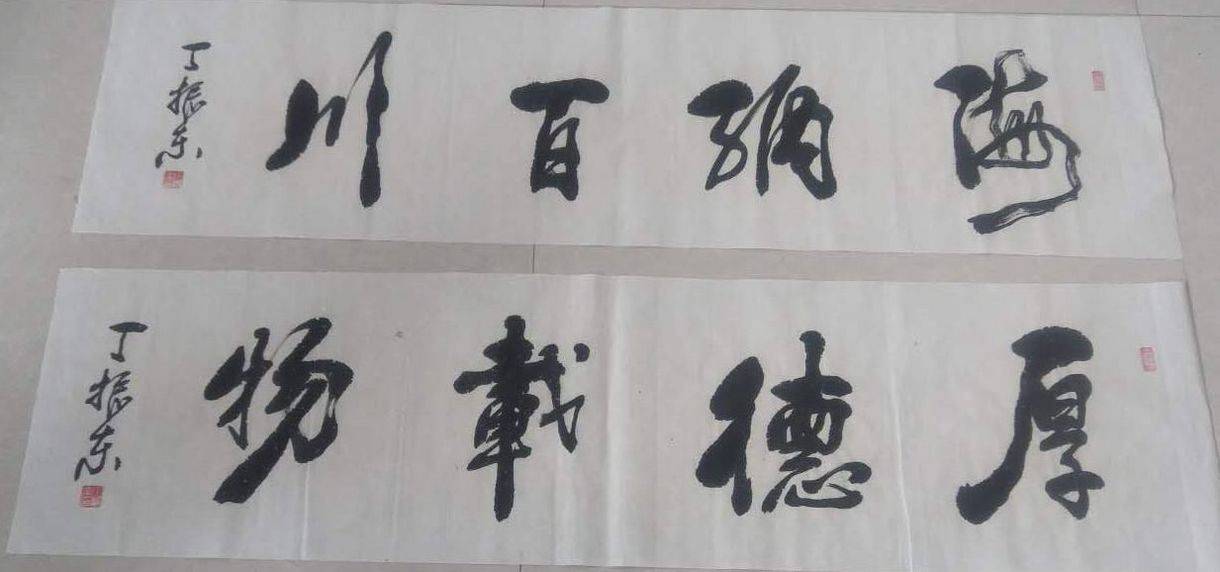 海纳百川
丁振东
厚德載物
丁振东